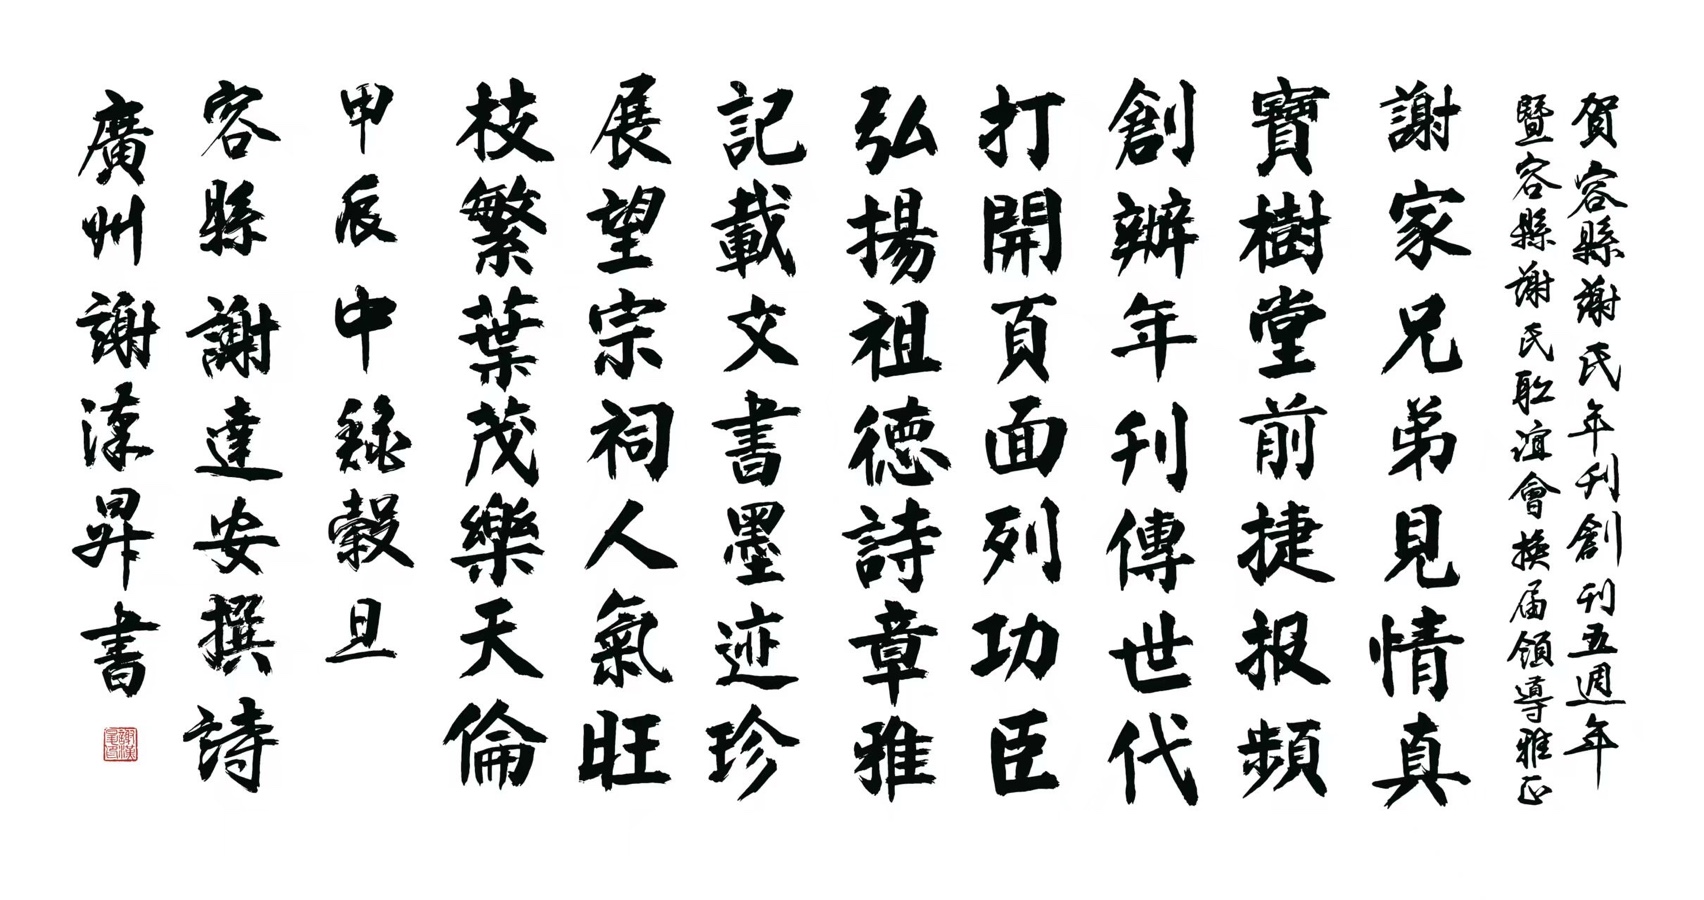 賀容縣謝氏年刊創刊五週年
暨容縣謝氏聯誼會換届領導雅正
謝家兄弟見情真
寶樹堂前捷报頻
創辦年刊傳世代
打開頁面列功臣
弘揚祖德詩章雅
記載文書墨迹珍
展望宗祠人氣旺
枝繁葉茂樂天倫
甲辰中龝穀旦
容縣謝達安撰詩
廣州謝漢昇書